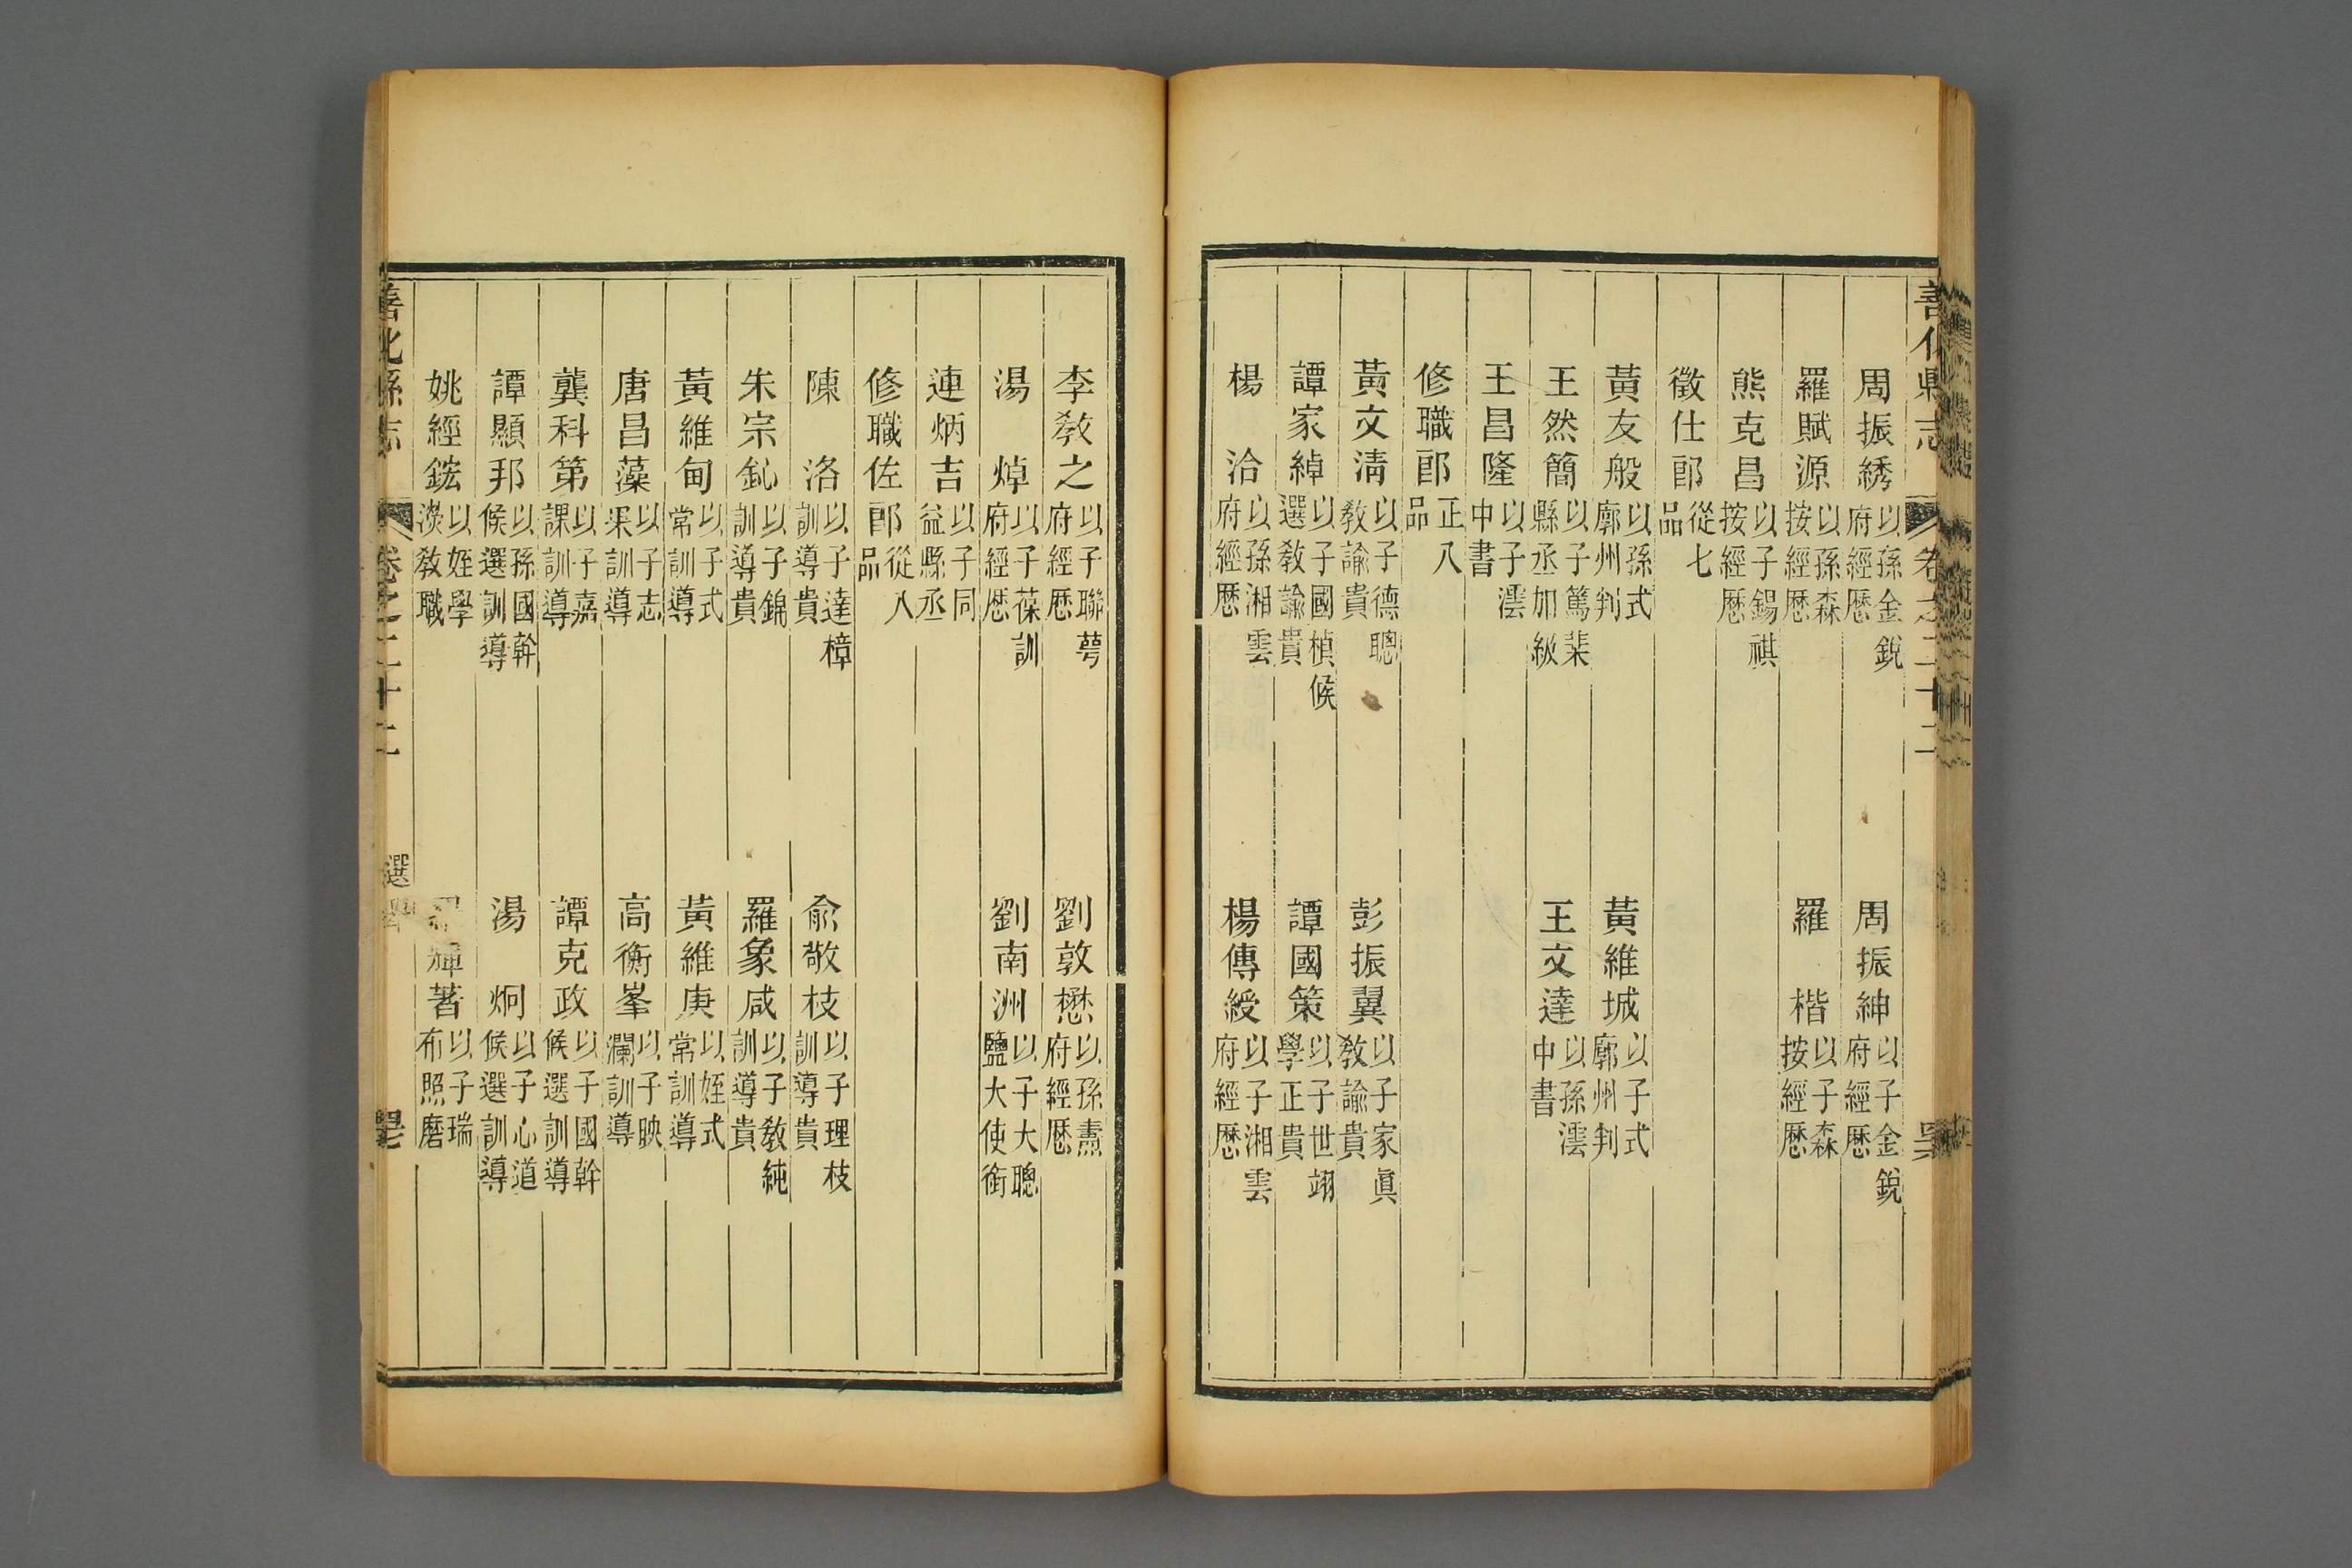 善化縣志 卷之二十二
周振綉 以孫金銳府經歷 周振紳 以子金銳府經歷
羅賦源 以孫森按經歷 羅楷 以子森按經歷
熊克昌 以子錫祺按經歷
徵仕郎 從七品
黃友般 以孫式廓州判 黃維城 以子式廓州判
王然簡 以子篤棐縣丞加級 王文達 以孫澐中書
王昌隆 以子澐中書
修職郎 正八品
黃文淸 以子德聰敎諭貴 彭振翼 以子家眞敎諭貴
譚家綽 以子國楨候選敎諭貴 譚國策 以子世翊學正貴
楊洽 以孫湘雲府經歷 楊傳綬 以子湘雲府經歷
李敎之 以子聯萼府經歷 劉敦懋 以孫燾府經歷
湯焯 以子葆訓府經歷 劉南洲 以子大聰鹽大使銜
連炳吉 以子同益縣丞
修職佐郎 從八品
陳洛 以子達樟訓導貴 俞敬枝 以子理枝訓導貴
朱宗釚 以子錦訓導貴 羅象咸 以子敎純訓導貴
黃維甸 以子式常訓導 黃維庚 以姪式常訓導
唐昌藻 以子志寀訓導 高衡峯 以子映瀾訓導
龔科第 以子嘉課訓導 譚克政 以子國幹候選訓導
譚顯邦 以孫國幹候選訓導 湯炯 以子心道候選訓導
姚經鋐 以姪學淡敎職 輝著 以子瑞布照磨
善化縣志 卷之二十二 選